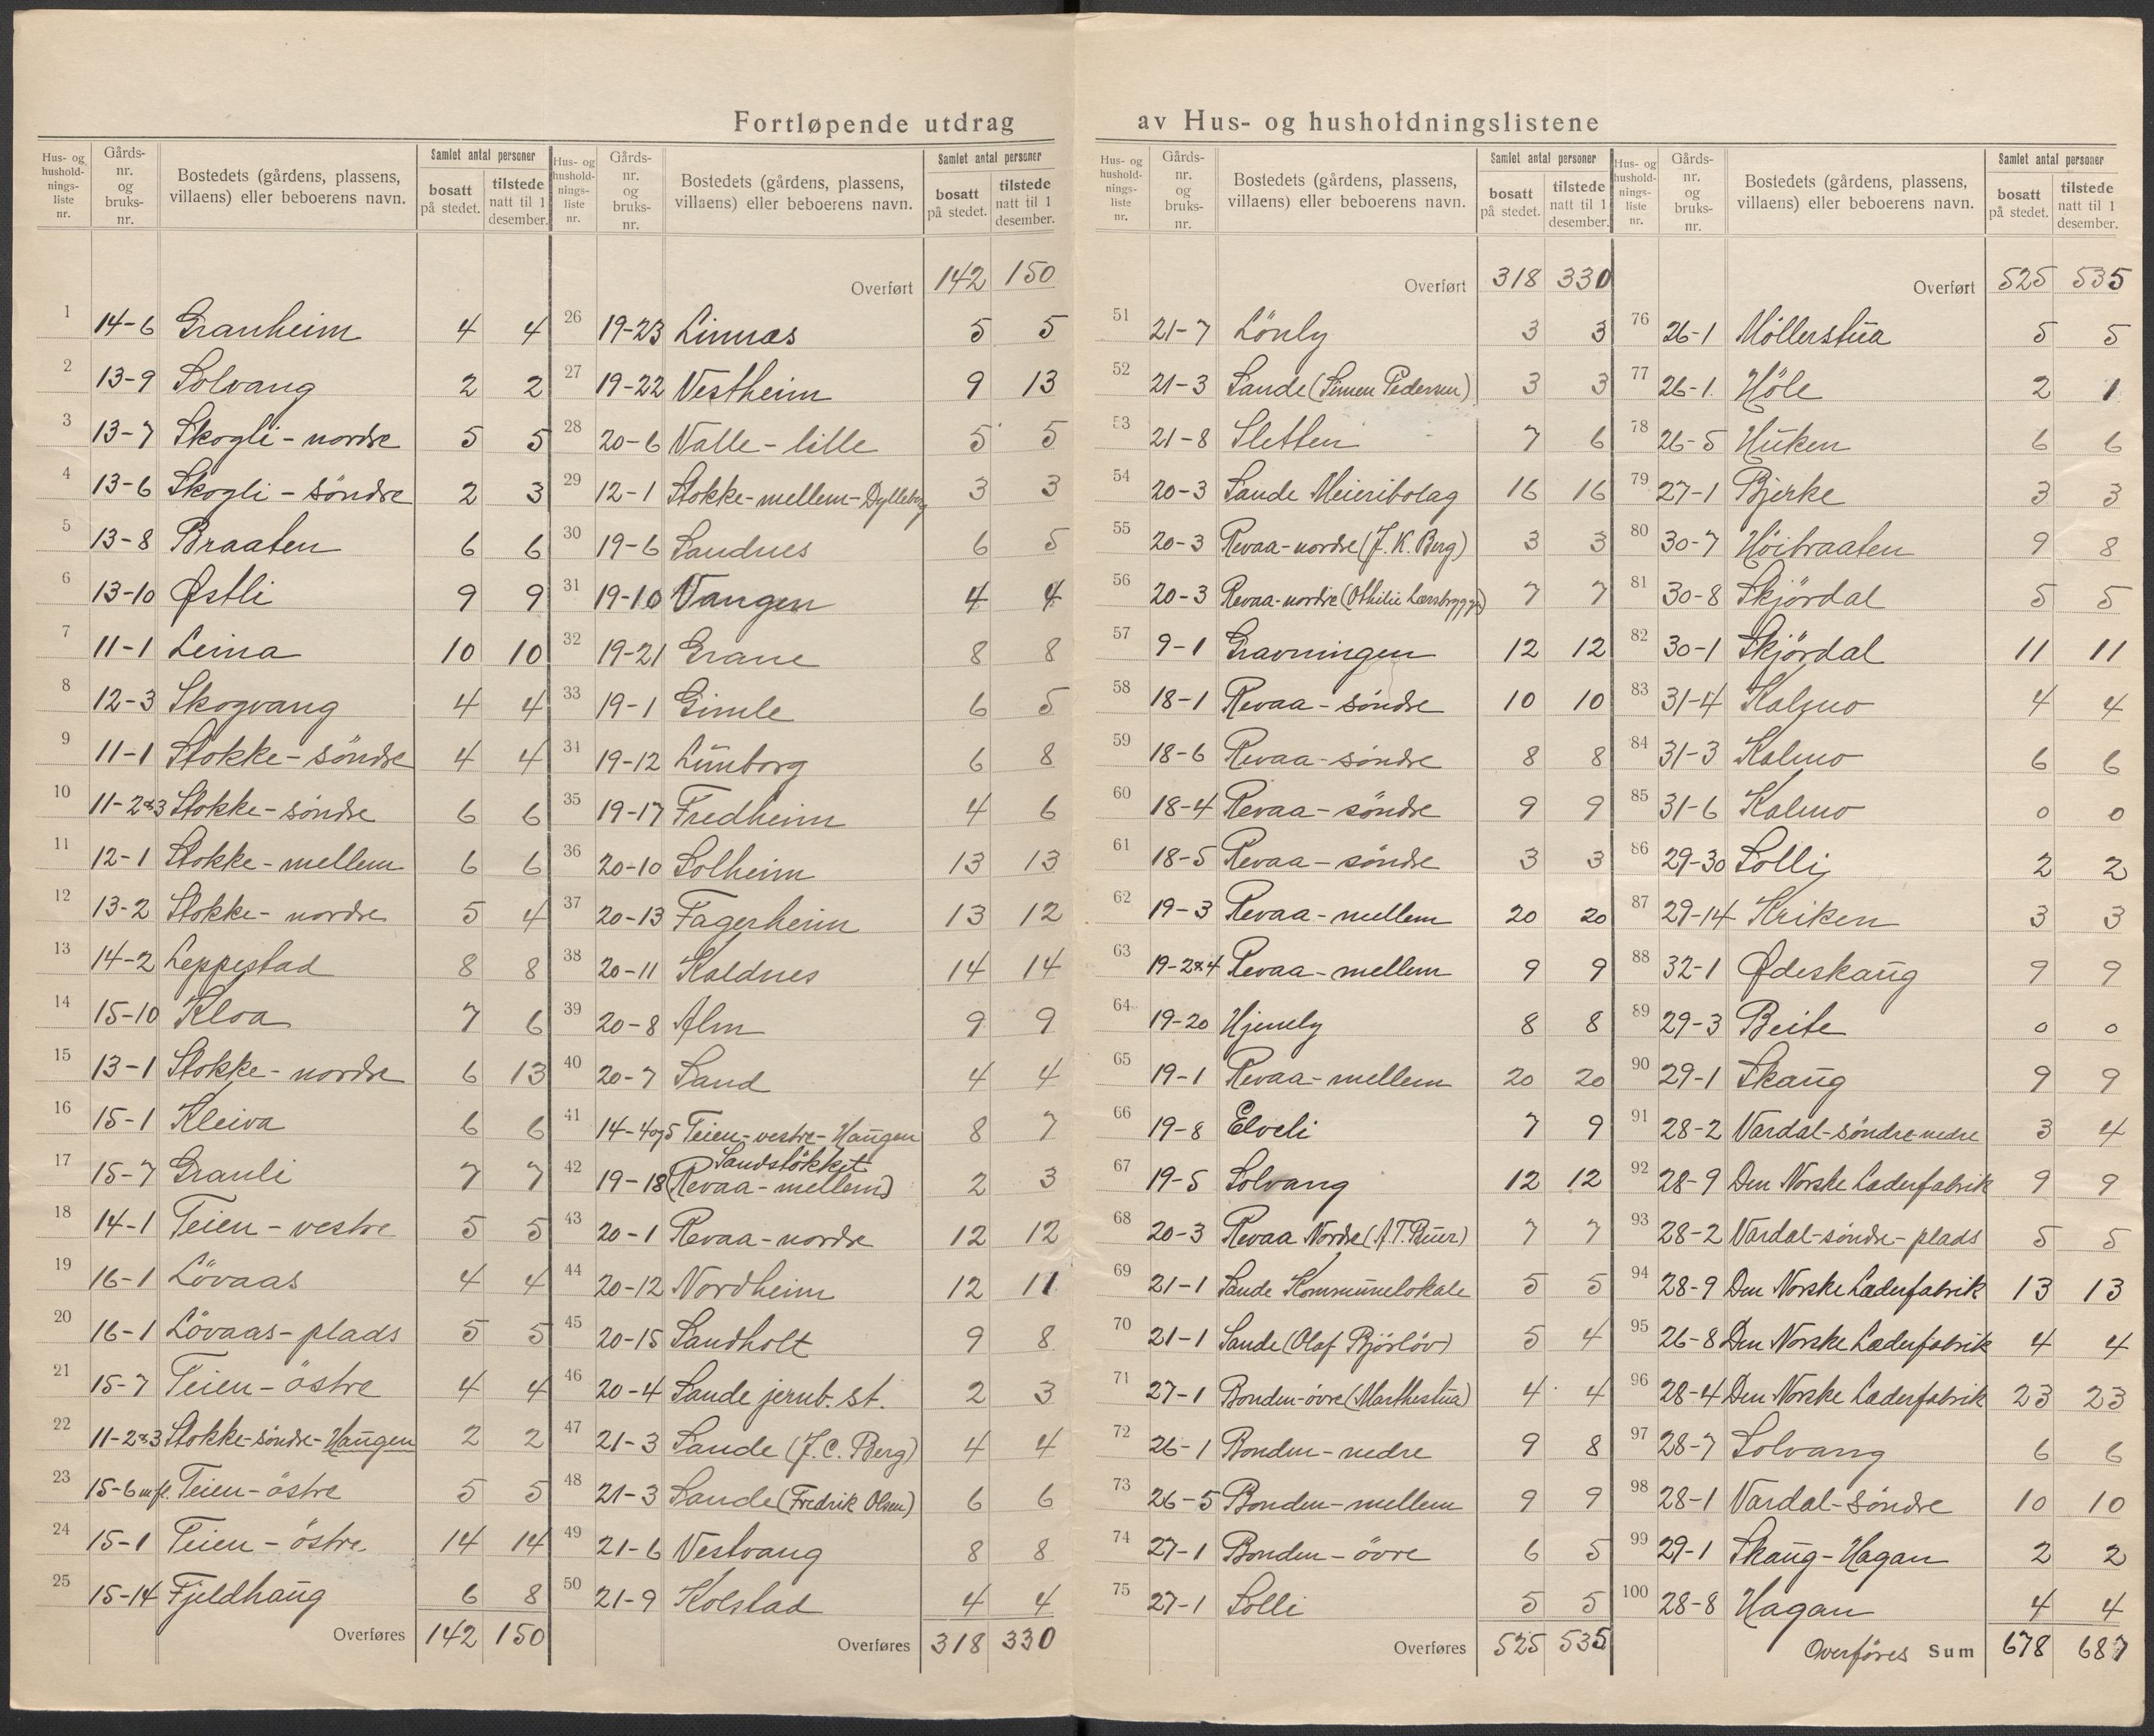 Fortløpende utdrag av Hus- og husholdningslistene
Hus- og hushold-nings-liste nr. | Gårds-nr. og bruks-nr. | Bostedets (gårdens, plassens, villaens) eller beboerens navn. | Samlet antal personer | bosatt på stedet. | tilstede natt til 1 desember.
1 14-6 Granheim 4 4
2 13-9 Solvang 2 2
3 13-7 Skogli-nordre 5 5
4 13-6 Skogli-söndre 2 3
5 13-8 Braaten 6 6
6 13-10 Østli 9 9
7 11-1 Leina 10 10
8 12-3 Skogvang 4 4
9 11-1 Stokke-söndre 4 4
10 11-2&3 Stokke-söndre 6 6
11 12-1 Stokke-mellem 6 6
12 13-2 Stokke-nordre 5 4
13 14-2 Leppestad 8 8
14 15-10 Kloa 7 6
15 13-1 Stokke-nordre 6 13
16 15-1 Kleiva 6 6
17 15-7 Granli 7 7
18 14-1 Teien-vestre 5 5
19 16-1 Lövaas 4 4
20 16-1 Lövaas-plads 5 5
21 15-7 Teien-östre 4 4
22 11-2&3 Stokke-söndre-Haugen 2 2
23 15-6 mfl. Teien-östre 5 5
24 15-1 Teien-östre 14 14
25 15-14 Fjeldhaug 6 8
Overføres 142 150
Hus- og hushold-nings-liste nr. | Gårds-nr. og bruks-nr. | Bostedets (gårdens, plassens, villaens) eller beboerens navn. | Samlet antal personer | bosatt på stedet. | tilstede natt til 1 desember.
Overført 142 150
26 19-23 Linnæs 5 5
27 19-22 Vestheim 9 13
28 20-6 Valle-lille 5 5
29 12-1 Stokke-mellem-Dylleborg 3 3
30 19-6 Sandnes 6 5
31 19-10 Vangen 4 4
32 19-21 Grane 8 8
33 19-1 Gimle 6 5
34 19-12 Lunborg 6 8
35 19-17 Fredheim 4 6
36 20-10 Solheim 13 13
37 20-13 Fagerheim 13 12
38 20-11 Kaldnes 14 14
39 20-8 Alm 9 9
40 20-7 Sand 4 4
41 14-4og5 Teien-vestre-Haugen 8 7
42 19-18 Sandstökket (Revaa-mellem) 2 3
43 20-1 Revaa-nordre 12 12
44 20-12 Nordheim 12 11
45 20-15 Sandholt 9 8
46 20-4 Sande jernb. st. 2 3
47 21-3 Sande (J. C. Berg) 4 4
48 21-3 Sande (Fredrik Olsen) 6 6
49 21-6 Vestvang 8 8
50 21-9 Kolstad 4 4
Overføres 318 330
Hus- og hushold-nings-liste nr. | Gårds-nr. og bruks-nr. | Bostedets (gårdens, plassens, villaens) eller beboerens navn. | Samlet antal personer | bosatt på stedet. | tilstede natt til 1 desember.
Overført 318 330
51 21-7 Lönly 3 3
52 21-3 Sande (Simen Pedersen) 3 3
53 21-8 Sletten 7 6
54 20-3 Sande Meieribolag 16 16
55 20-3 Revaa-nordre (J. K. Berg) 3 3
56 20-3 Revaa-nordre (Othilie Larsbrygga) 7 7
57 9-1 Gravningen 12 12
58 18-1 Revaa-söndre 10 10
59 18-6 Revaa-söndre 8 8
60 18-4 Revaa-söndre 9 9
61 18-5 Revaa-söndre 3 3
62 19-3 Revaa-mellem 20 20
63 19-2&4 Revaa-mellem 9 9
64 19-20 Hjemly 8 8
65 19-1 Revaa-mellem 20 20
66 19-8 Elveli 7 9
67 19-5 Solvang 12 12
68 20-3 Revaa Nordre (A.T. Buer) 7 7
69 21-1 Sande Kommunelokale 5 5
70 21-1 Sande (Olaf Björlöv) 5 4
71 27-1 Bonden-övre (Marthestua) 4 4
72 26-1 Bonden-nedre 9 8
73 26-5 Bonden-mellem 9 9
74 27-1 Bonden-övre 6 5
75 27-1 Solli 5 5
Overføres 525 535
Hus- og hushold-nings-liste nr. | Gårds-nr. og bruks-nr. | Bostedets (gårdens, plassens, villaens) eller beboerens navn. | Samlet antal personer | bosatt på stedet. | tilstede natt til 1 desember.
Overført 525 535
76 26-1 Möllerstua 5 5
77 26-1. Höle 2 1
78 26-5 Huken 6 6
79 27-1 Bjerke 3 3
80 30-7 Höibraaten 9 8
81 30-8 Skjördal 5 5
82 30-1 Skjördal 11 11
83 31-4 Kalmo 4 4
84 31-3 Kalmo 6 6
85 31-6 Kalmo 0 0
86 29-30 Solli 2 2
87 29-14 Kriken 3 3
88 32-1 Ødeskaug 9 9
89 29-3 Beite 0 0
90 29-1 Skaug 9 9
91 28-2 Vardal-söndre-nedre 3 4
92 28-9 Den Norske Læderfabrik 9 9
93 28-2 Vardal-söndre-plads 5 5
94 28-9 Den Norske Læderfabrik 13 13
95 26-8 Den Norske Læderfabrik 4 4
96 28-4 Den Norske Læderfabrik 23 23
97 28-7 Solvang 6 6
98 28-1 Vardal-söndre 10 10
99 29-1 Skaug-Hagan 2 2
100 28-8 Hagan 4 4
Overföres Sum 678 687